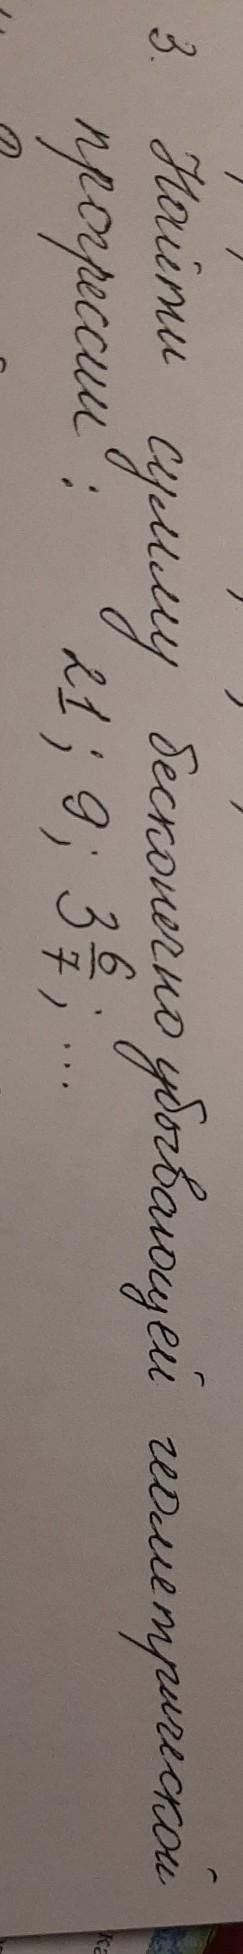 3. Найти сумму бесконечно убывающей геометрической
прогрессии : 21; 9; 3 6/7; ...